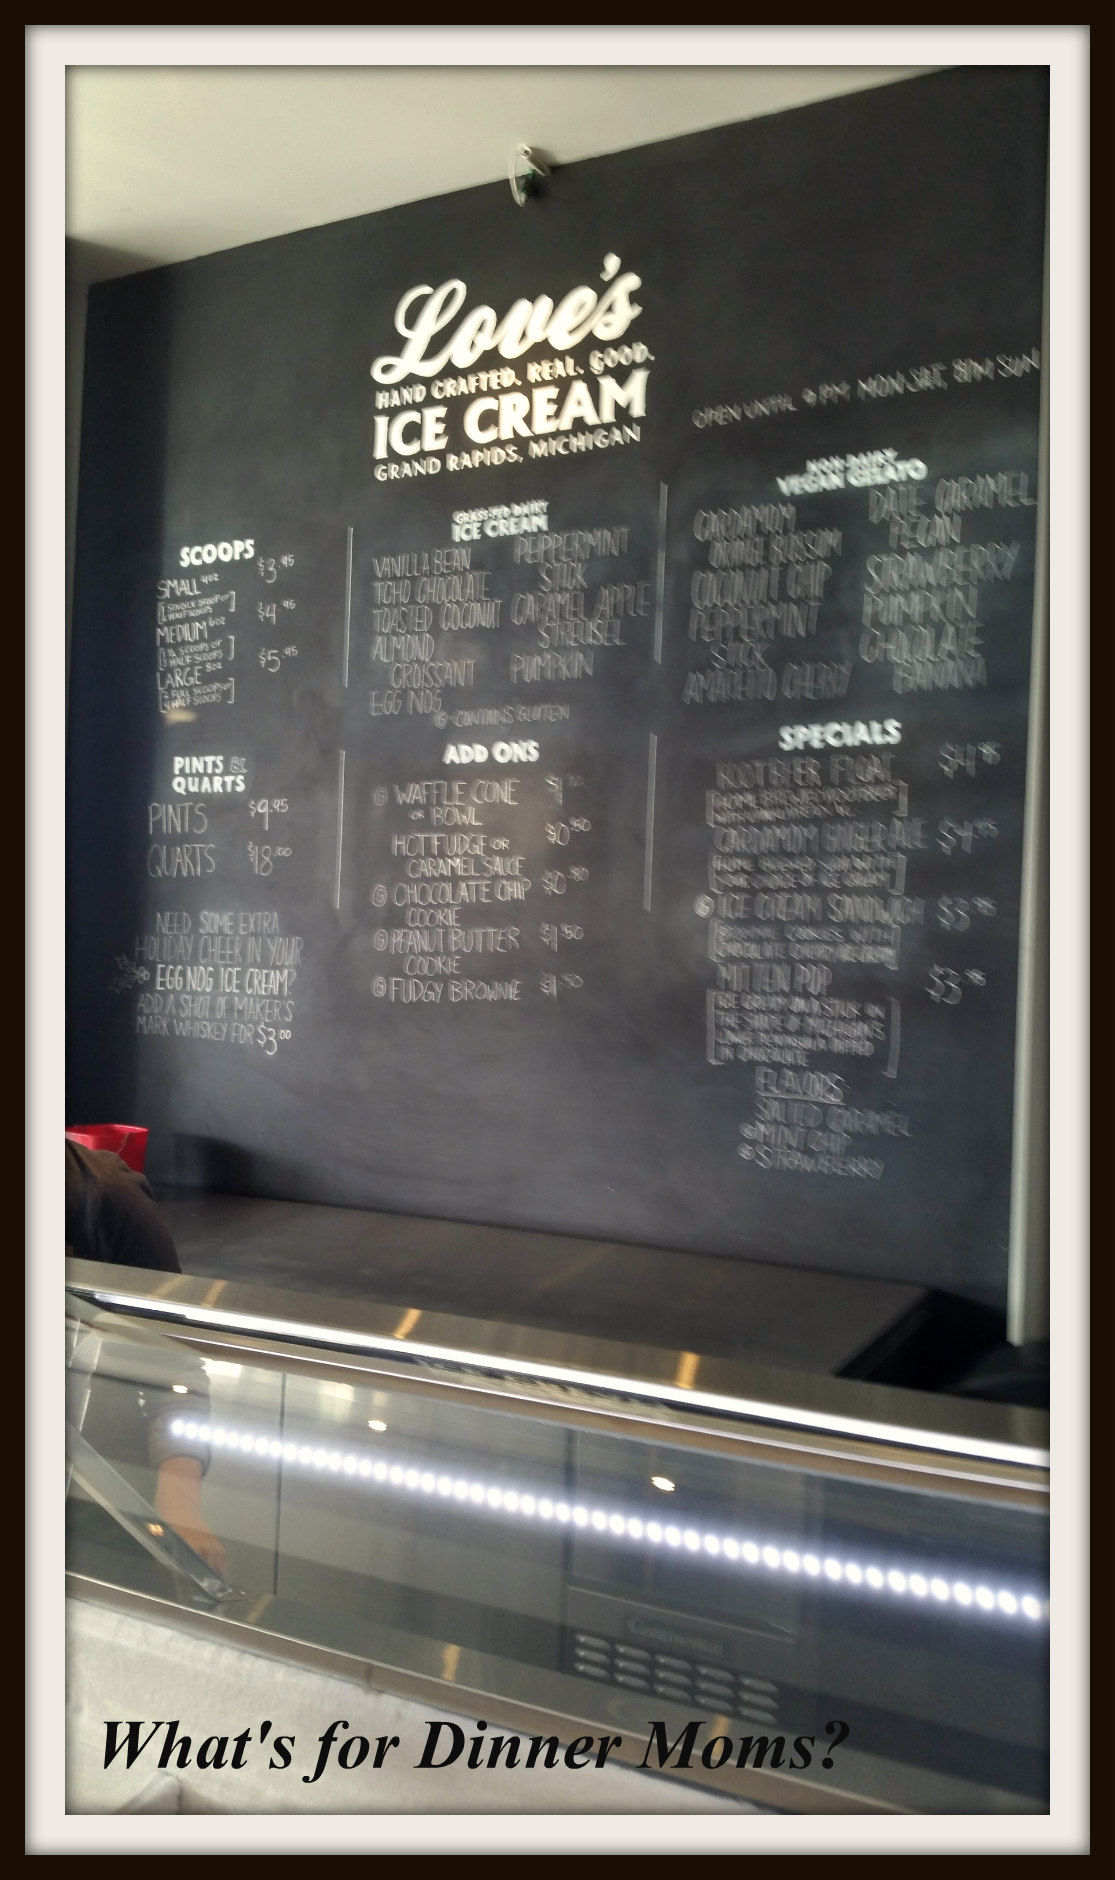 Love's
HAND CRAFTED. REAL. GOOD.
ICE CREAM
GRAND RAPIDS, MICHIGAN
OPEN UNTIL 9 PM MON-SAT, 8PM SUN
SCOOPS
SMALL 4oz $3.95
MEDIUM 6oz $4.95
LARGE 8oz $5.95
PINTS &
QUARTS
PINTS $9.95
QUARTS $18.00
NEED SOME EXTRA
HOLIDAY CHEER IN YOUR
EGG NOG ICE CREAM?
ADD A SHOT OF MAKER'S
MARK WHISKEY FOR $3.00
GRASS-FED DAIRY
ICE CREAM
VANILLA BEAN
TCHO CHOCOLATE
TOASTED COCONUT
ALMOND
CROISSANT
EGG NOG
PEPPERMINT
STICK
CARAMEL APPLE
STREUSEL
PUMPKIN
G-CONTAINS GLUTEN
ADD ONS
G WAFFLE CONE
OR BOWL
HOT FUDGE OR $0.50
CARAMEL SAUCE
G CHOCOLATE CHIP
COOKIE
G PEANUT BUTTER $1.50
COOKIE
G FUDGY BROWNIE $1.50
NON-DAIRY
VEGAN GELATO
CARDAMOM
ORANGE BLOSSOM
COCONUT CHIP
PEPPERMINT
STICK
AMARENO CHERRY
DATE CARAMEL
PECAN
STRAWBERRY
PUMPKIN
CHOCOLATE
BANANA
SPECIALS
ROOT BEER FLOAT $4.95
CARDAMOM GINGER ALE $4.95
G ICE CREAM SANDWICH $3.95
MITTEN POP $3.95
ICE CREAM ON A STICK IN
THE SHAPE OF MICHIGAN'S
LOWER PENINSULA DIPPED
IN CHOCOLATE
FLAVORS:
SALTED CARAMEL
G MINT CHIP
G STRAWBERRY
Continental
What's for Dinner Moms?